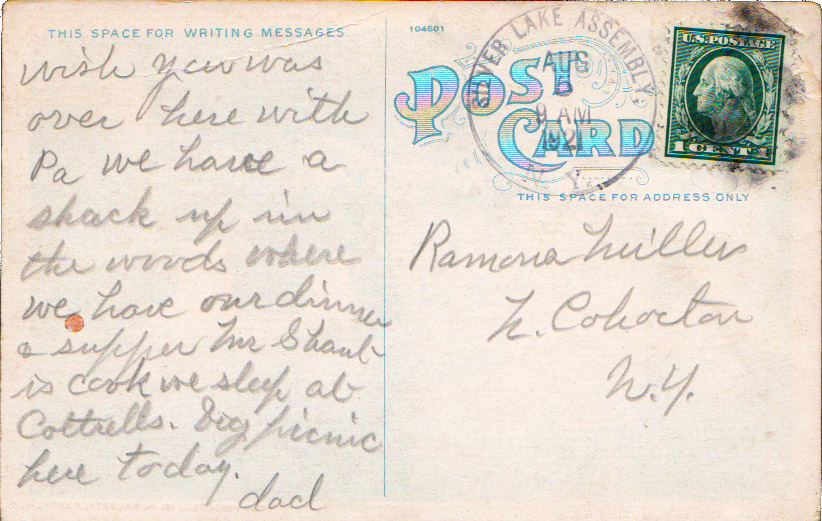 THIS SPACE FOR WRITING MESSAGES
wish you was
over here with
Pa we have a
shack up in
the woods where
we have our dinner
& supper Mr Shaub
is cook we sleep at
Cottrells. Big picnic
here today.
dad
104601
POST CARD
SILVER LAKE ASSEMBLY
AUG
5
9 AM
1921
N.Y.
U.S. POSTAGE
1 CENT 1
THIS SPACE FOR ADDRESS ONLY
Ramona Miller
N. Cohocton
N.Y.